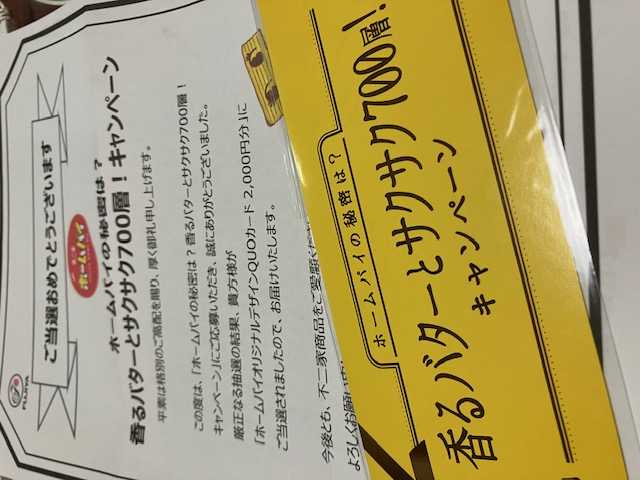 FUJIYA
ご当選おめでとうございます
ホームパイ
ホームパイの秘密は？
香るバターとサクサク700層！キャンペーン
平素は格別のご高配を賜り、厚く御礼申し上げます。
この度は、「ホームパイの秘密は？香るバターとサクサク700層！
キャンペーン」にご応募いただき、誠にありがとうございました。
厳正なる抽選の結果、貴方様が
「ホームパイオリジナルデザインQUOカード 2,000円分」に
ご当選されましたので、お届けいたします。
今後とも、不二家商品をご愛顧くだ
よろしくお願い
ホームパイの秘密は？
香るバターとサクサク700層！
キャンペーン